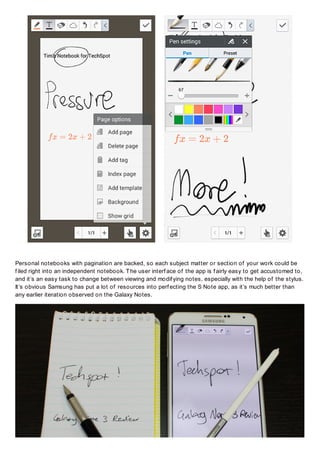 Tim's Notebook for TechSpot
Pressure
fx = 2x + 2
Page options
Add page
Delete page
Add tag
Index page
Add template
Background
Show grid
1/1
Pen settings
Pen
Preset
67
fx = 2x + 2
More!
1/1
Personal notebooks with pagination are backed, so each subject matter or section of your work could be
filed right into an independent notebook. The user interface of the app is fairly easy to get accustomed to,
and it's an easy task to change between viewing and modifying notes, especially with the help of the stylus.
It's obvious Samsung has put a lot of resources into perfecting the S Note app, as it's much better than
any earlier iteration observed on the Galaxy Notes.
Techspot!
Galaxy Note 3 Review
Techspot!
Galaxy Note 3 Review